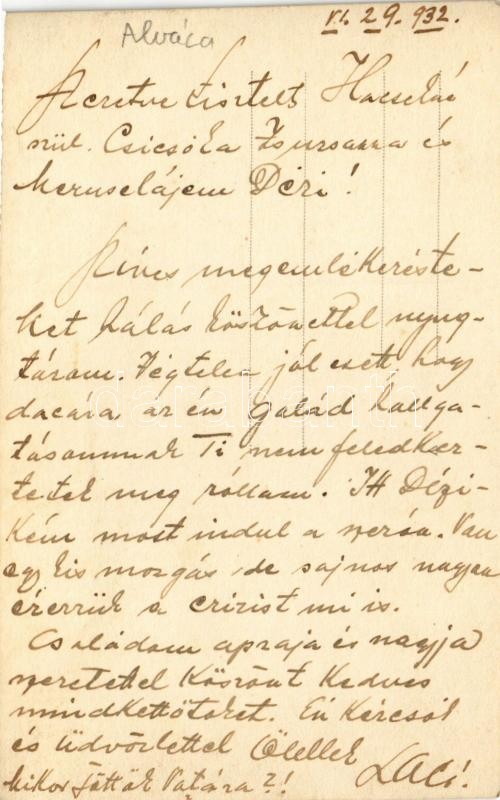 Alváca
VI. 29. 932.
Szeretve tisztelt Hacsekné
szül. Csicsóka Zsuzsanna és
Meruselájem Dézi!
Szíves megemlékezéste-
ket hálás köszönettel nyug-
tázom. Végtelen jól esett hogy
dacára az én galád hallga-
tásomnak Ti nem feledkez-
tetek meg róllam. Itt Dézi-
kém most indul a szezón. Van
egy kis mozgás, de sajnos nagyon
érezzük a crizist mi is.
Családom apraja és nagyja
szeretettel köszönt kedves
mindkettőtöket. Én kézcsók
és üdvözlettel Ölellek
Mikor jöttök Vatára?! Laci.